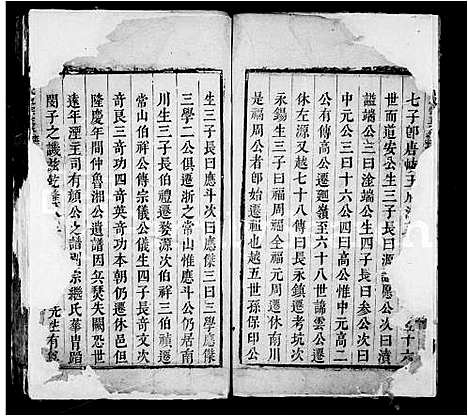 七子郎唐岐王
世而道安公生三子長曰源愿公次曰瀆
諡端公三曰淦端公生四子長曰參公次曰
中元公三曰十六公四曰高公惟中元高二
公遷迴嶺至六十八世諦雲公遷
休左源又越七十八傳曰長永鎮遷考坑次
永錫生三子曰福周福全福元周遷休南川
是福周公者郎始遷祖也越五世孫保印公
生三子長曰應斗次曰應傑三曰三學應傑
三學二公俱遷浙之常山惟應斗公仍居南
川生三子長伯禮遷婺源次伯果三伯祥遷
常山伯祥公傳宗儀公儀生四子長奇文次
奇艮三奇功四奇英奇功本朝仍遷休邑但
隆慶年間仲魯湘公遺譜因年燹失闕恐世
遠年湮主司有顏公之譜別宗繼氏葦冑蹈
閔子之譏茲
元生有